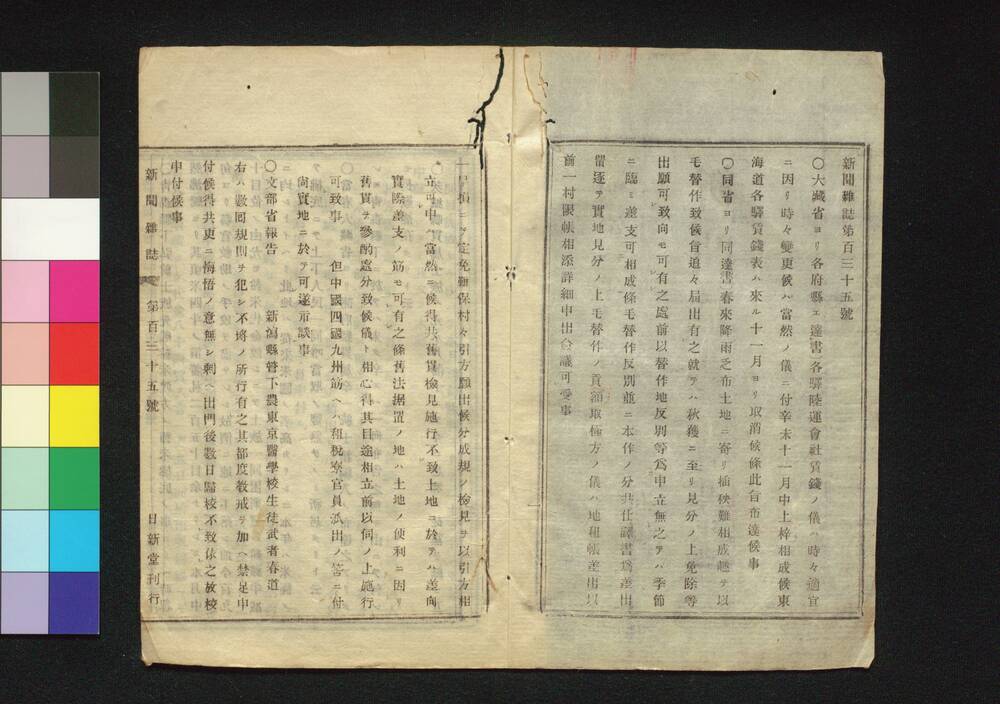 新聞雜誌第百三十五號
〇大藏省ヨリ各府縣エ達書各驛陸運會社賃錢ノ儀ハ時々適宜
ニ因リ時々變更候ハ當然ノ儀ニ付辛未十一月中上梓相成候東
海道各驛賃錢表ハ來ル十一月ヨリ取消候條此旨布達候事
〇同省ヨリ同達書春來降雨乏布土地ニ寄リ插秧難相成趣ヲ以
毛替作致候旨追々屆出有之就テハ秋穫ニ至リ見分ノ上免除等
出願可致向モ可有之處前以替作地反別等爲申立無之テハ季節
ニ臨ミ差支可相成條毛替作反別並ニ本作ノ分共仕譯書爲差出
留逐テ實地見分ノ上毛替作ノ貢額取極方ノ儀ハ地租帳差出以
前一村限帳相添詳細申出合議可受事
一旦損ニテ定免難保村々引方願出候分成規ノ檢見ヲ以引方相
立可申ハ當然ニ候得共舊貫檢見施行不致土地ニ於テハ差向
實際差支ノ筋モ可有之條舊法据置ノ地ハ土地ノ便利ニ因リ
舊貫ヲ參酌處分致候儀ト相心得其目途相立前以伺ノ上施行
可致事 但中國四國九州筋ヘハ租稅寮官員派出ノ筈ニ付
尚實地ニ於テ可遂示談事
〇文部省報告 新潟縣管下農東京醫學校生徒武者春道
右ハ數回規則ヲ犯シ不埒ノ所行有之其部度敎戒ヲ加ヘ禁足申
付候得共更ニ悔悟ノ意無シ剩ヘ出門後數日歸校不致依之放校
申付候事
新聞雜誌 第百三十五號 日新堂刊行